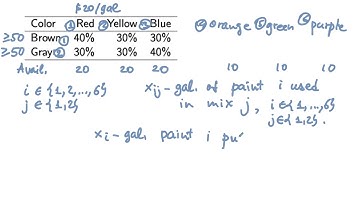 $20/gal
Color ① Red ② Yellow ③ Blue ④ orange ⑤ green ⑥ purple
≥50 Brown ① 40% 30% 30%
≥50 Gray ② 30% 30% 40%
Avail. 20 20 20 10 10 10
i ∈ {1,2,...,6} xij - gal. of paint i used
j ∈ {1,2} in mix j, i ∈ {1,...,6}
j ∈ {1,2}.
xi - gal. paint i pu